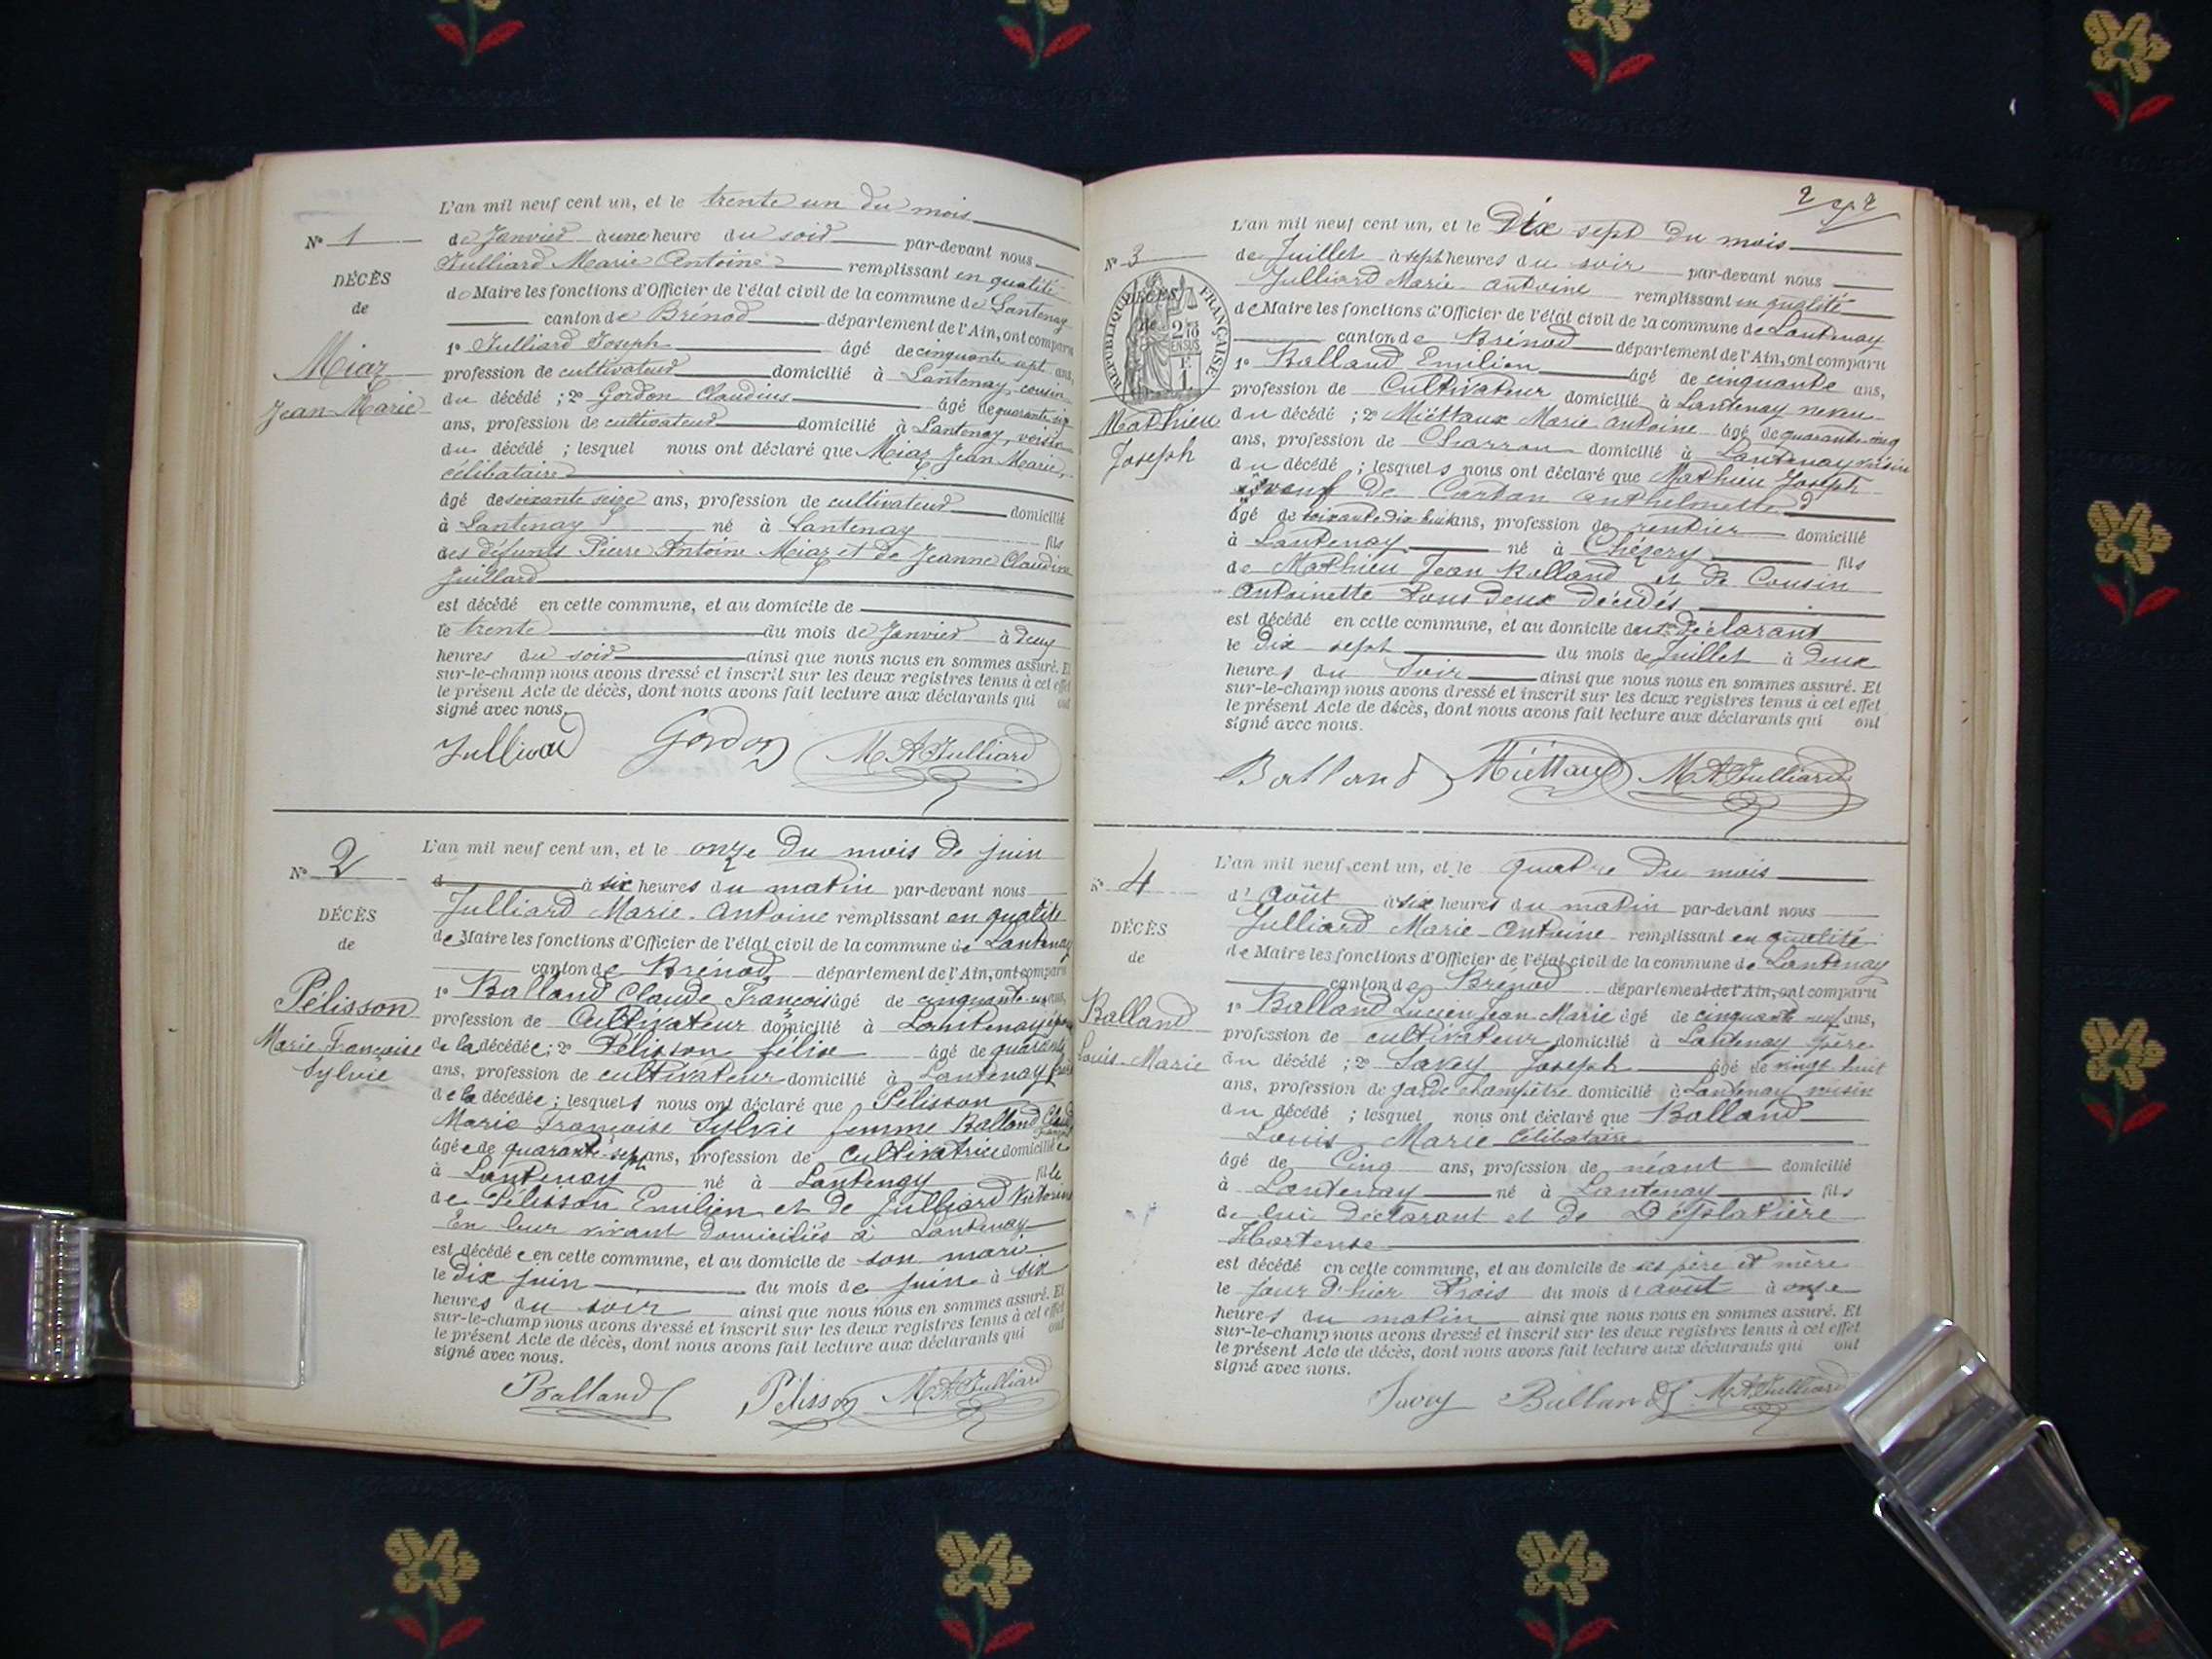 L'an mil neuf cent un, et le trente un du mois
N° 1
de Janvier à une heure du soir par-devant nous
Julliard Marie Antoine remplissant en qualité
DÉCÈS
de Maire les fonctions d'Officier de l'état civil de la commune de Lantenay
de
canton de Brénod département de l'Ain, ont comparu
1° Julliard Joseph âgé de cinquante sept ans,
Miaz
profession de cultivateur domicilié à Lantenay, cousin
Jean Marie
du décédé ; 2° Gordon Claudius âgé de quarante six
ans, profession de cultivateur domicilié à Lantenay, voisin
du décédé ; lesquel nous ont déclaré que Miaz Jean Marie,
célibataire
âgé de soixante seize ans, profession de cultivateur domicilié
à Lantenay né à Lantenay fils
des défunts Pierre Antoine Miaz et de Jeanne Claudine
Juillard
est décédé en cette commune, et au domicile de
le trente du mois de Janvier à deux
heures du soir ainsi que nous nous en sommes assuré. Et
sur-le-champ nous avons dressé et inscrit sur les deux registres tenus à cet effet
le présent Acte de décès, dont nous avons fait lecture aux déclarants qui ont
signé avec nous.
Julliard Gordon M A Julliard
L'an mil neuf cent un, et le onze du mois de juin
N° 2
d à six heures du matin par-devant nous
Julliard Marie-Antoine remplissant en qualité
DÉCÈS
de Maire les fonctions d'Officier de l'état civil de la commune de Lantenay
de
canton de Brénod département de l'Ain, ont comparu
1° Balland Claude François âgé de cinquante-un ans,
Pélisson
profession de Cultivateur domicilié à Lantenay époux
Marie Françoise
de la décédée ; 2° Pélisson félix âgé de quarante
Sylvie
ans, profession de cultivateur domicilié à Lantenay frère
de la décédée ; lesquels nous ont déclaré que Pélisson
Marie Françoise Sylvie femme Balland Claude François
âgée de quarante-sept ans, profession de Cultivatrice domiciliée
à Lantenay né à Lantenay fille
de Pélisson Emilien et de Julliard Victorine
En leur vivant domiciliés à Lantenay
est décédée en cette commune, et au domicile de son mari
le dix juin du mois de juin à six
heures du soir ainsi que nous nous en sommes assuré. Et
sur-le-champ nous avons dressé et inscrit sur les deux registres tenus à cet effet
le présent Acte de décès, dont nous avons fait lecture aux déclarants qui ont
signé avec nous.
Balland Pélisson M A Julliard
2
L'an mil neuf cent un, et le Dix sept du mois
N° 3
de Juillet à sept heures du soir par-devant nous
Julliard Marie-Antoine remplissant en qualité
DÉCÈS
de
RÉPUBLIQUE FRANÇAISE
de Maire les fonctions d'Officier de l'état civil de la commune de Lantenay
canton de Brénod département de l'Ain, ont comparu
1° Balland Emilien âgé de cinquante ans,
profession de Cultivateur domicilié à Lantenay neveu
Mathieu
du décédé ; 2° Miéttaux Marie-Antoine âgé de quarante-cinq
Joseph
ans, profession de Charron domicilié à Lantenay voisin
du décédé ; lesquels nous ont déclaré que Mathieu Joseph
veuf de Carban Anthelmette
âgé de soixante dix huit ans, profession de rentier domicilié
à Lantenay né à Chézery fils
de Mathieu Jean Rolland et de Cousin
Antoinette tous deux décédés
est décédé en cette commune, et au domicile du 1er déclarant
le dix sept du mois de Juillet à deux
heures du soir ainsi que nous nous en sommes assuré. Et
sur-le-champ nous avons dressé et inscrit sur les deux registres tenus à cet effet
le présent Acte de décès, dont nous avons fait lecture aux déclarants qui ont
signé avec nous.
Balland Miéttaux M A Julliard
L'an mil neuf cent un, et le quatre du mois
N° 4
d'Août à six heures du matin par-devant nous
Julliard Marie-Antoine remplissant en qualité
DÉCÈS
de Maire les fonctions d'Officier de l'état civil de la commune de Lantenay
de
canton de Brénod département de l'Ain, ont comparu
Balland
1° Balland Lucien Jean Marie âgé de cinquante neuf ans,
profession de cultivateur domicilié à Lantenay père
Louis-Marie
du décédé ; 2° Savey Joseph âgé de vingt huit
ans, profession de garde champêtre domicilié à Lantenay voisin
du décédé ; lesquel nous ont déclaré que Balland
Louis Marie célibataire
âgé de Cinq ans, profession de néant domicilié
à Lantenay né à Lantenay fils
de lui déclarant et de Déplatière
Hortense
est décédé en cette commune, et au domicile de ses père et mère
le jour d'hier trois du mois d'août à onze
heures du matin ainsi que nous nous en sommes assuré. Et
sur-le-champ nous avons dressé et inscrit sur les deux registres tenus à cet effet
le présent Acte de décès, dont nous avons fait lecture aux déclarants qui ont
signé avec nous.
Savey Balland M A Julliard